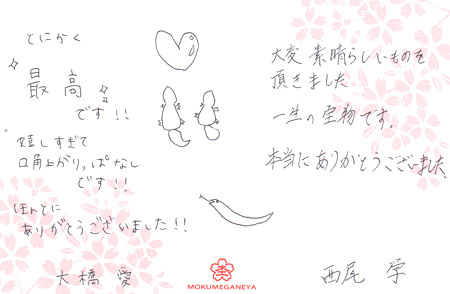 とにかく
最高
です!!
嬉しすぎて
口角上がりっぱなし
です!!
ほんとに
ありがとうございました!!
大橋 愛
大変素晴らしいものを
頂きました
一生の宝物です。
本当にありがとうございました。
西尾 学
MOKUMEGANEYA